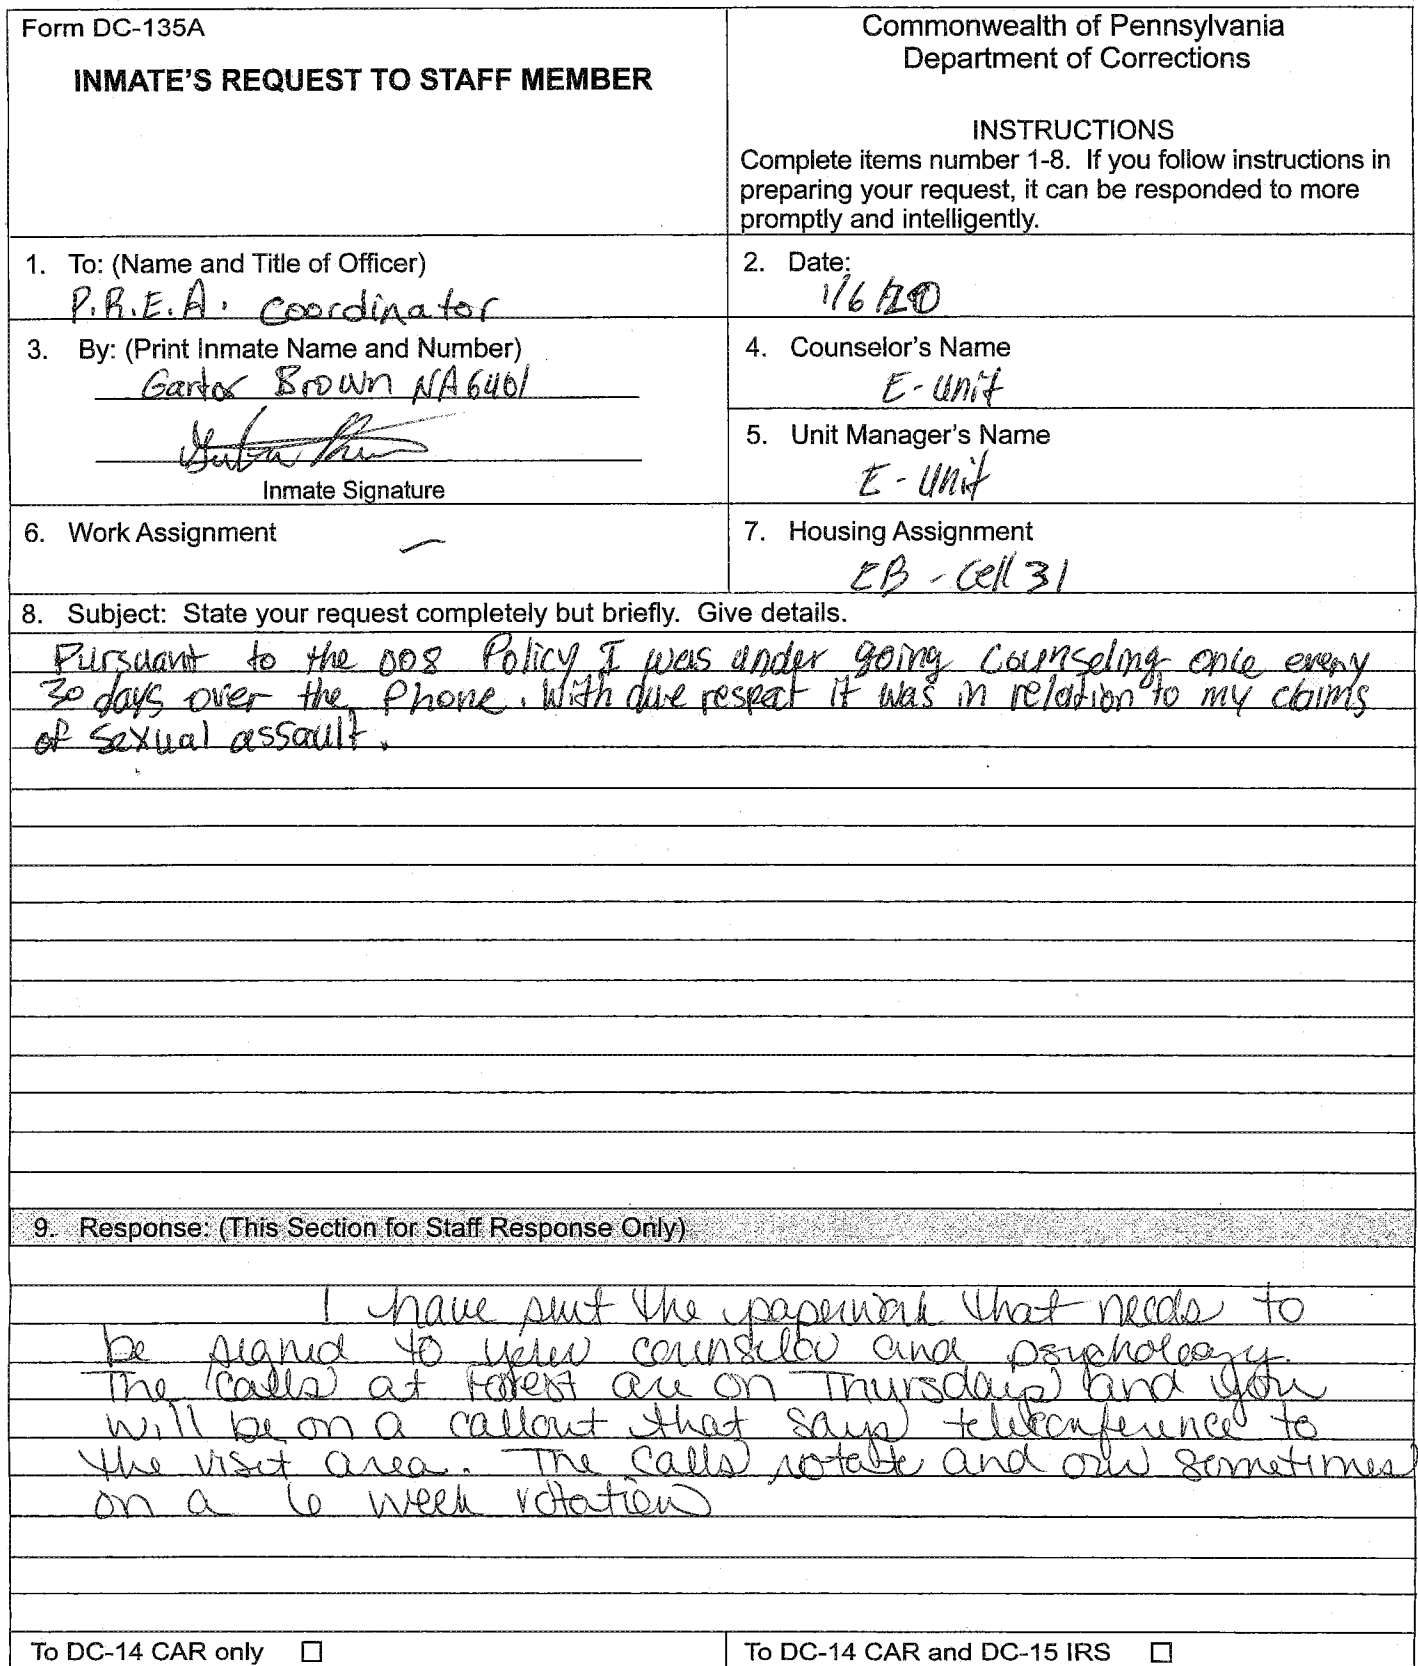 Form DC-135A
INMATE'S REQUEST TO STAFF MEMBER
Commonwealth of Pennsylvania
Department of Corrections
INSTRUCTIONS
Complete items number 1-8. If you follow instructions in
preparing your request, it can be responded to more
promptly and intelligently.
1. To: (Name and Title of Officer)
P.R.E.A. Coordinator
2. Date:
1/6/20
3. By: (Print Inmate Name and Number)
Brown NA6401
Inmate Signature
4. Counselor's Name
E-Unit
5. Unit Manager's Name
E-Unit
6. Work Assignment —
7. Housing Assignment
EB - Cell 31
8. Subject: State your request completely but briefly. Give details.
Pursuant to the 008 Policy I was under going Counseling once every
30 days over the Phone. With due respect it was in relation to my claims
of Sexual assault.
9. Response: (This Section for Staff Response Only)
I have sent the paperwork that needs to
be signed to your counselor and psychology.
The calls at Forest are on Thursdays and you
will be on a callout that says teleconference to
the visit area. The calls rotate and are sometimes
on a 6 week rotation
To DC-14 CAR only ☐
To DC-14 CAR and DC-15 IRS ☐